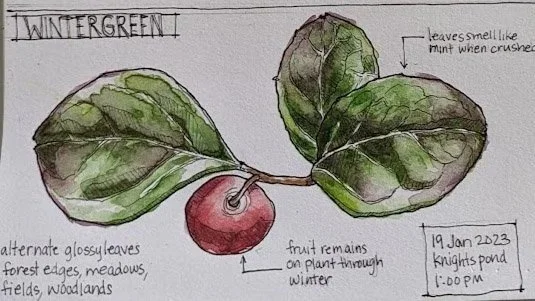 WINTERGREEN
leaves smell like
mint when crushed
alternate glossy leaves
forest edges, meadows,
fields, woodlands
fruit remains
on plant through
winter
19 Jan 2023
Knights pond
1:00 PM